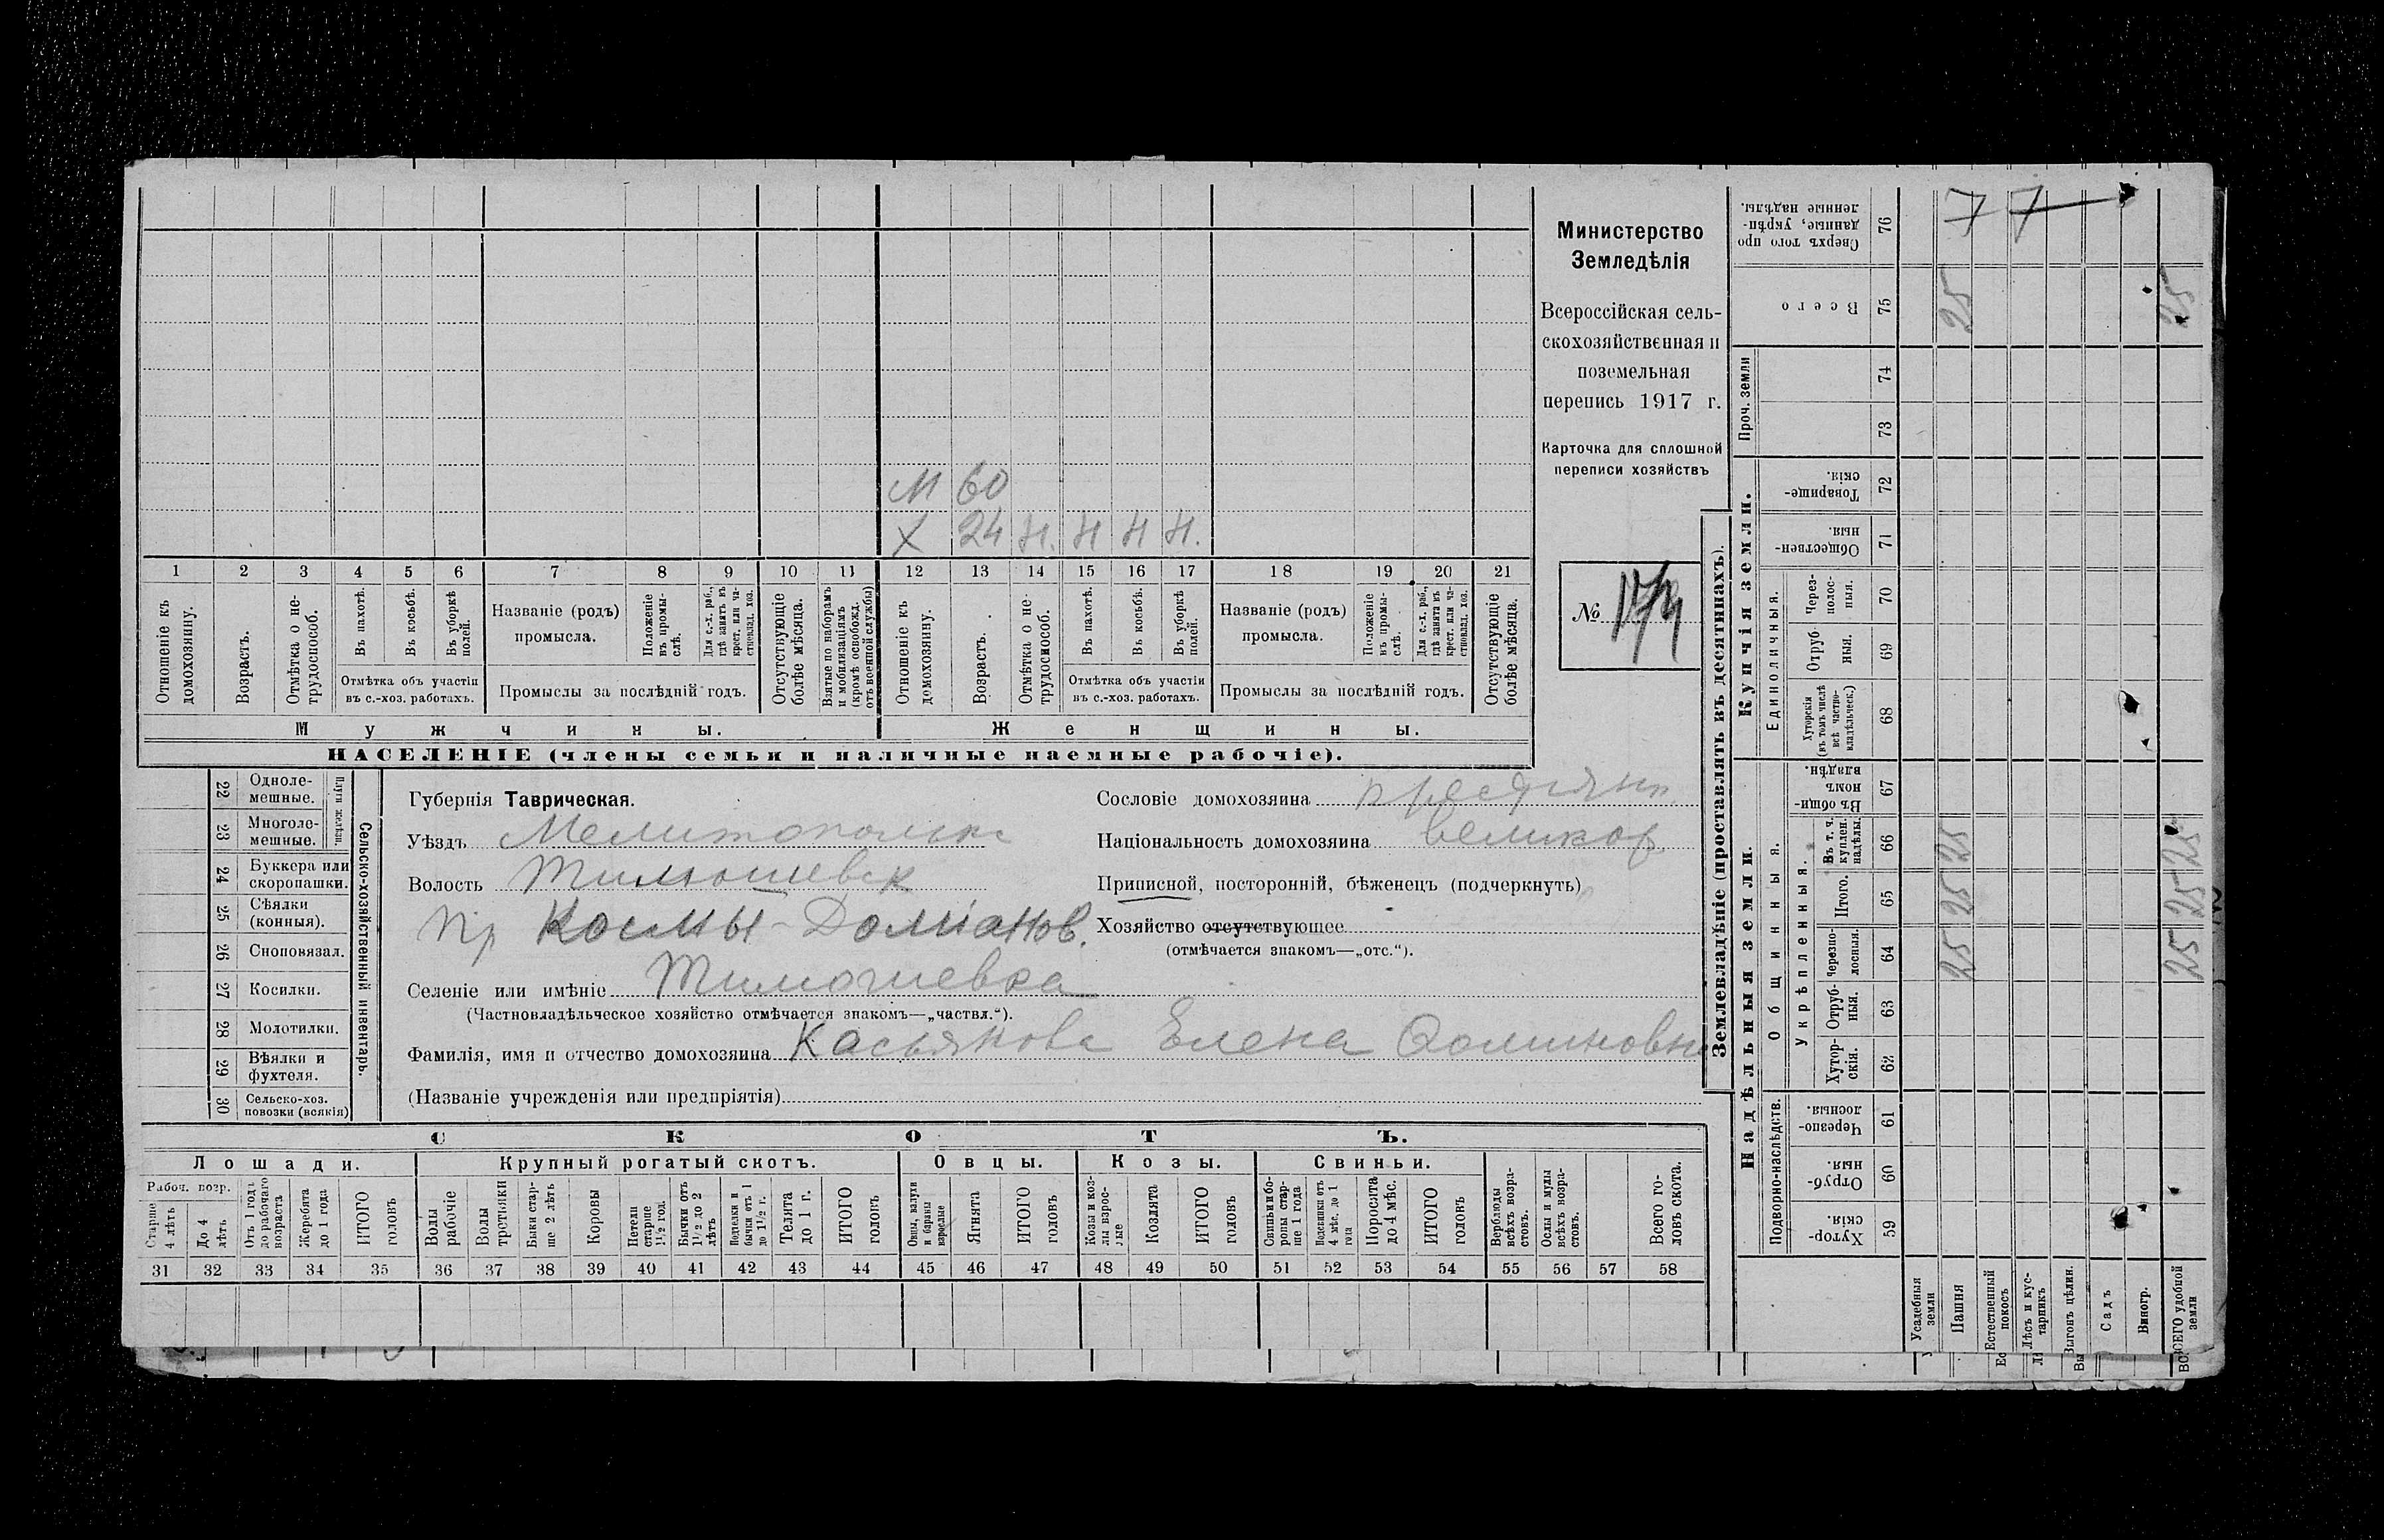 М 60
Х 24 Н. Н Н Н.
1 2 3 4 5 6 7 8 9 10 11 12 13 14 15 16 17 18 19 20 21
Отношеніе къ домохозяину.
Возрастъ.
Отмѣтка о не-трудоспособ.
Въ пахотѣ.
Въ косьбѣ.
Въ уборкѣ полей.
Отмѣтка объ участіи
въ с.-хоз. работахъ.
Названіе (родъ)
промысла.
Положеніе въ промы-слѣ.
Для с.-х. раб., гдѣ занятъ въ крест. или ча-стновлад. хоз.
Промыслы за послѣдній годъ.
Отсутствующіе болѣе мѣсяца.
Взятые по наборамъ и мобилизаціямъ (кромѣ освобожд. отъ военной службы)
Отношеніе къ домохозяину.
Возрастъ.
Отмѣтка о не-трудоспособ.
Въ пахотѣ.
Въ косьбѣ.
Въ уборкѣ полей.
Отмѣтка объ участіи
въ с.-хоз. работахъ.
Названіе (родъ)
промысла.
Положеніе въ промы-слѣ.
Для с.-х. раб., гдѣ занята въ крест. или ча-стновлад. хоз.
Промыслы за послѣдній годъ.
Отсутствующіе болѣе мѣсяца.
Мужчины.
Женщины.
НАСЕЛЕНІЕ (члены семьи и наличные наемные рабочіе).
Министерство
Земледѣлія
Всероссійская сель-
скохозяйственная и
поземельная
перепись 1917 г.
Карточка для сплошной
переписи хозяйствъ
№
Сельско-хозяйственный инвентарь.
Плуги желѣзн.
22 Одноле-
мешные.
23 Многоле-
мешные.
24 Буккера или
скоропашки.
25 Сѣялки
(конныя).
26 Сноповязал.
27 Косилки.
28 Молотилки.
29 Вѣялки и
фухтеля.
30 Сельско-хоз.
повозки (всякія)
Губернія Таврическая.
Уѣздъ Мелитопольск
Волость Тимошевск
пр Космы-Доміанов.
Селеніе или имѣніе Тимошевка
(Частновладѣльческое хозяйство отмѣчается знакомъ—„частвл.“).
Фамилія, имя и отчество домохозяина Касьянова Елена
(Названіе учрежденія или предпріятія)
Сословіе домохозяина крестьян
Національность домохозяина великор
Приписной, посторонній, бѣженецъ (подчеркнуть)
Хозяйство отсутствующее
(отмѣчается знакомъ—„отс.“).
СКОТЪ.
Лошади.
Крупный рогатый скотъ.
Овцы.
Козы.
Свиньи.
Рабоч. возр.
Старше 4 лѣтъ
До 4 лѣтъ
Отъ 1 года до рабочаго возраста
Жеребята до 1 года
ИТОГО головъ
Волы рабочіе
Волы третьяки
Быки стар-ше 2 лѣтъ
Коровы
Нетели старше 1½ год.
Бычки отъ 1½ до 2 лѣтъ
Нетелки и бычки отъ 1 до 1½ г.
Телята до 1 г.
ИТОГО головъ
Овцы, валухи и бараны взрослые
Ягнята
ИТОГО головъ
Козы и коз-лы взрос-лые
Козлята
ИТОГО головъ
Свиньи и бо-ровы стар-ше 1 года
Подсвинки отъ 4 мѣс. до 1 года
Поросята до 4 мѣс.
ИТОГО головъ
Верблюды всѣхъ возра-стовъ.
Ослы и мулы всѣхъ возра-стовъ.
Всего го-ловъ скота.
31 32 33 34 35 36 37 38 39 40 41 42 43 44 45 46 47 48 49 50 51 52 53 54 55 56 57 58
Землевладѣніе (проставлять въ десятинахъ).
Надѣльныя земли.
Купчія земли.
Проч. земли
Подворно-наслѣдств.
Общинныя.
Укрѣпленныя.
Единоличныя.
Сверхъ того про данные, укрѣп-ленные надѣлы. 76 7 7
Всего 75 25 25
74
73
Товарище-скія. 72
Обществен-ныя. 71
Через-полос-ныя. 70
Отруб-ныя. 69
Хуторскія (въ томъ числѣ всѣ частно-владѣльческ.) 68
Въ общин-номъ владѣн. 67
Въ т. ч. куплен. надѣлы. 66 25 25
Итого. 65 25 25
Черезпо-лосныя. 64 25 25
Отруб-ныя. 63
Хутор-скія. 62
Черезпо-лосныя. 61
Отруб-ныя. 60
Хутор-скія. 59
Усадебныя земли
Пашня
Естественный покосъ
Лѣсъ и кус-тарникъ
Выгонъ цѣлин.
Садъ
Виногр.
ВСЕГО удобной земли